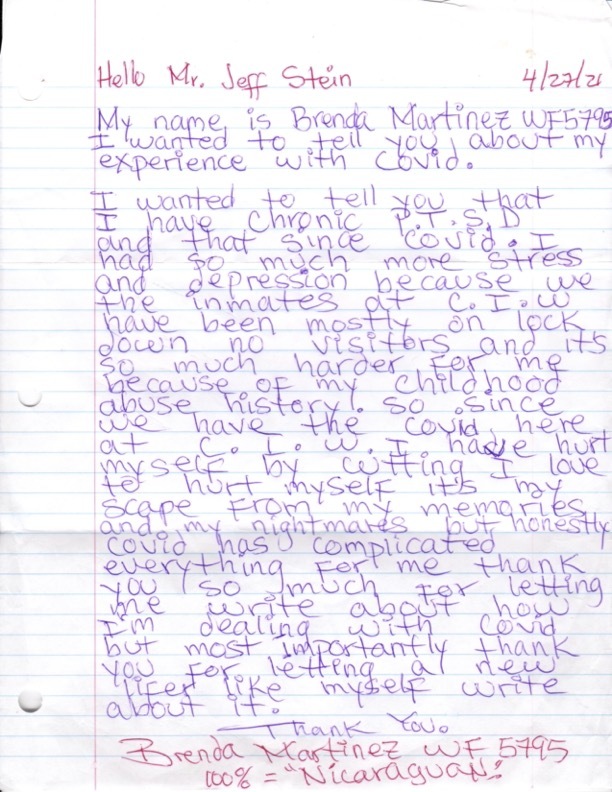 Hello Mr. Jeff Stein 4/27/21
My name is Brenda Martinez WF5795
I wanted to tell you about my
experience with Covid.
I wanted to tell you that
I have Chronic P.T.S.D
and that since Covid. I
had so much more stress
and depression because we
the inmates at C.I.W
have been mostly on lock
down no visitors and it's
so much harder for me
because of my childhood
abuse history! so since
we have the covid here
at C.I.W. I have hurt
myself by cutting I love
to hurt myself it's my
scape from my memories
and my nightmares but honestly
covid has complicated
everything for me thank
you so much for letting
me write about how
I'm dealing with covid
but most importantly thank
you for letting a new
lifer like myself write
about it.
Thank You.
Brenda Martinez WF 5795
100% = "Nicaraguan"